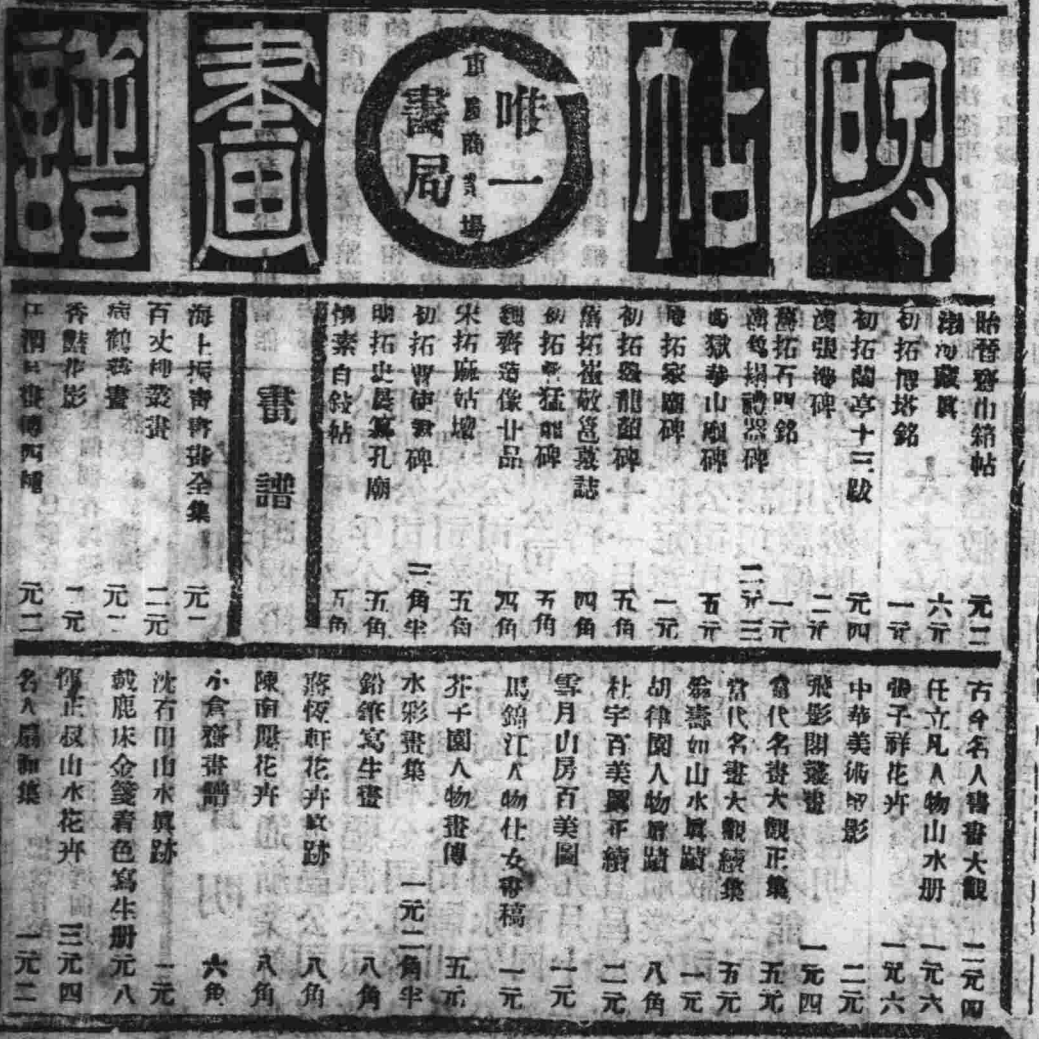 碑帖
唯一書局
重慶商業場
畫譜
元二
渤海藏真 六元
初拓博塔銘 一元
初拓蘭亭十三跋 元四
漢張遷碑 二元
舊拓石門銘 一元
禮器碑 二元三
西嶽華山廟碑 五元
家廟碑 一元
初拓龍顏碑 五角
舊拓崔敬邕墓誌 四角
初拓猛龍碑 五角
魏齊造像廿品 四角
宋拓麻姑壇 五角
初拓曹使君碑 三角半
明拓史晨饗孔廟 五角
懷素自敍帖 五角
畫譜
海上 書畫全集 元一
叢畫 二元
病鶴叢畫 元二
香豔花影 一元
元二
古今名人書畫大觀 二元四
任立凡人物山水册 一元六
張子祥花卉 一元六
中華美術留影 二元
飛影閣叢畫 一元四
當代名畫大觀正集 五元
當代名畫大觀續集 五元
山水真蹟 一元
胡律園人物真蹟 八角
百美圖正續 二元
雪月山房百美圖 一元
馬錦江人物仕女畫稿 一元
芥子園人物畫傳 五元
水彩畫集 一元二角半
鉛筆寫生畫 八角
蔣恆軒花卉真跡 八角
陳南 花卉 八角
小倉齋畫譜 六角
沈石田山水真跡 二元
戴鹿床金箋着色寫生册 元八
惲正叔山水花卉 三元四
名人扇面集 一元二